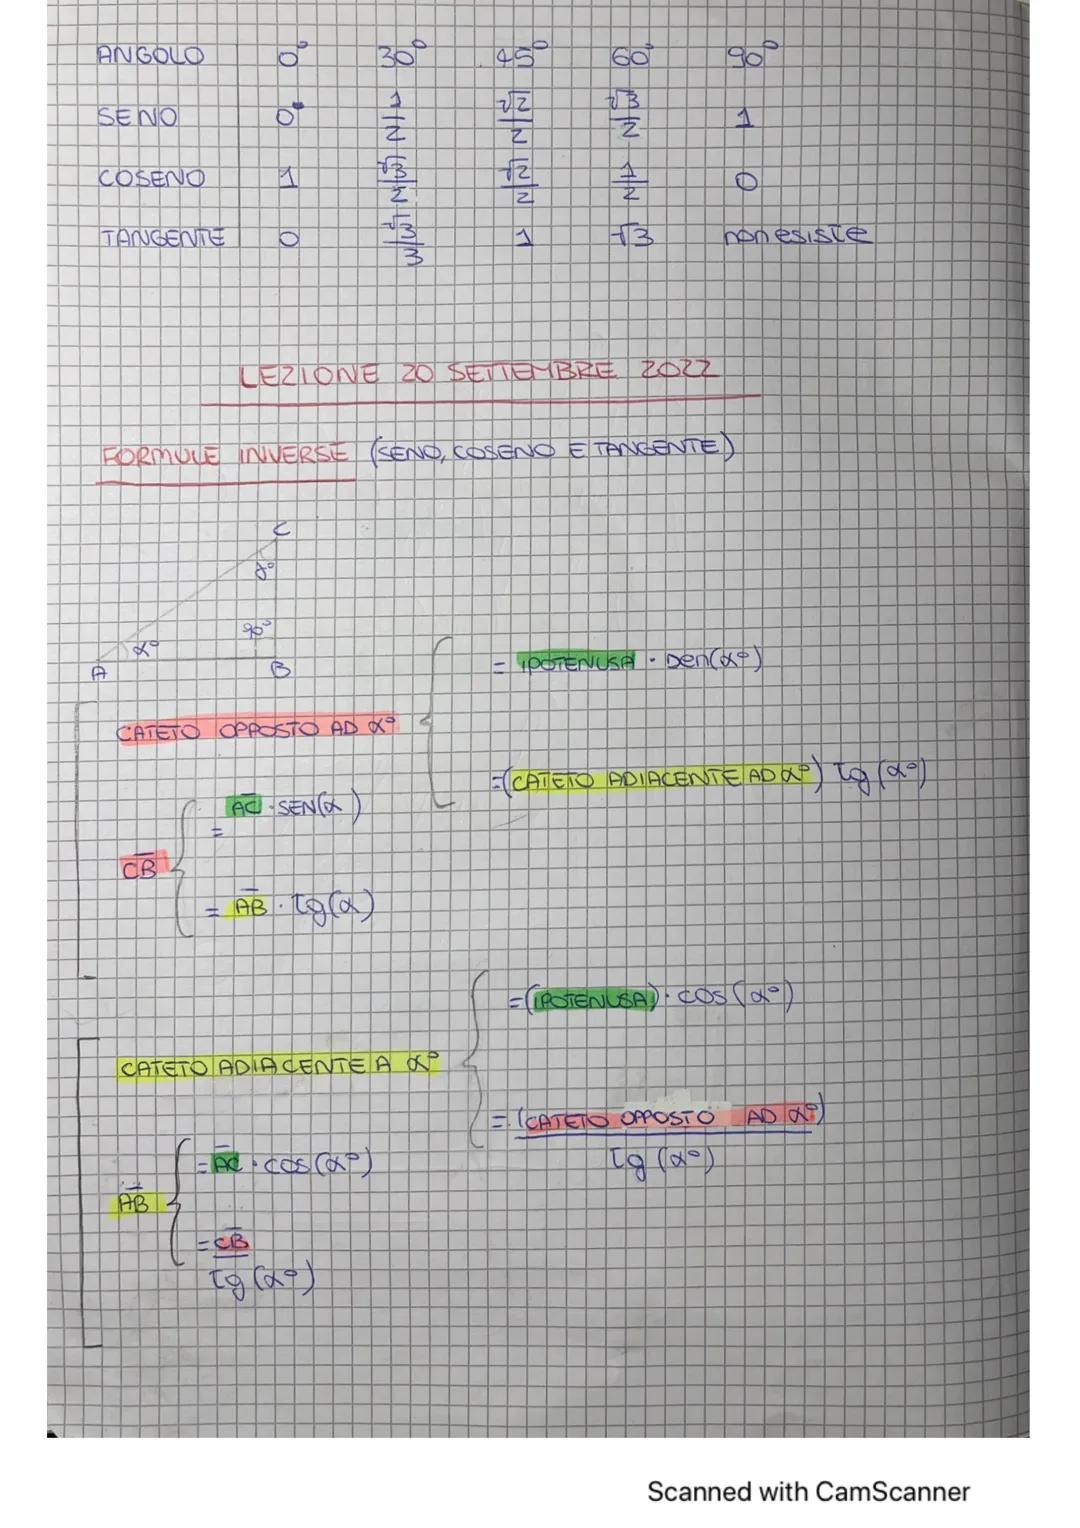 ANGOLO 0° 30° 45° 60° 90°
SENO 0° 1/2 √2/2 √3/2 1
COSENO 1 √3/2 √2/2 1/2 0
TANGENTE 0 √3/3 1 √3 non esiste
LEZIONE 20 SETTEMBRE 2022
FORMULE INVERSE (SENO, COSENO E TANGENTE)
C
γ°
90°
α°
A
B
CATETO OPPOSTO AD α°
= IPOTENUSA · Den(α°)
=(CATETO ADIACENTE AD α°) Tg (α°)
C̅B̅
= A̅C̅ · SEN(α)
= A̅B̅ · Tg(α)
CATETO ADIACENTE A α°
=(IPOTENUSA) · COS (α°)
= (CATETO OPPOSTO AD α°)
Tg (α°)
A̅B̅
= A̅C̅ · COS (α°)
= C̅B̅
Tg (α°)
Scanned with CamScanner